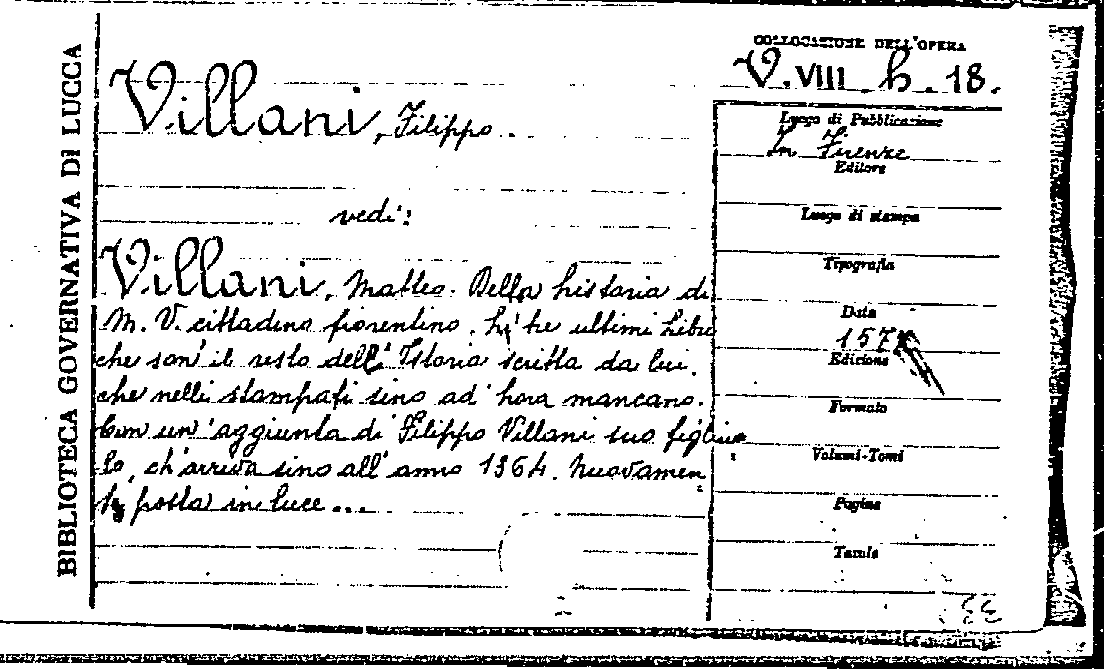 BIBLIOTECA GOVERNATIVA DI LUCCA
COLLOCAZIONE DELL'OPERA
V. VIII h. 18.
Villani, Filippo.
vedi:
Villani, Matteo. Della historia di
M. V. cittadino fiorentino. Li tre ultimi libri
che son' il resto dell' Istoria scritta da lui.
che nelli stampati sino ad' hora mancano.
Con un' aggiunta di Filippo Villani suo figliuo
lo, ch' arriva sino all' anno 1364. Nuovamen
te posta in luce...
Luogo di Pubblicazione
In Firenze
Editore
Luogo di stampa
Tipografia
Data
157
Edizione
Formato
Volumi-Tomi
Pagine
Tavole